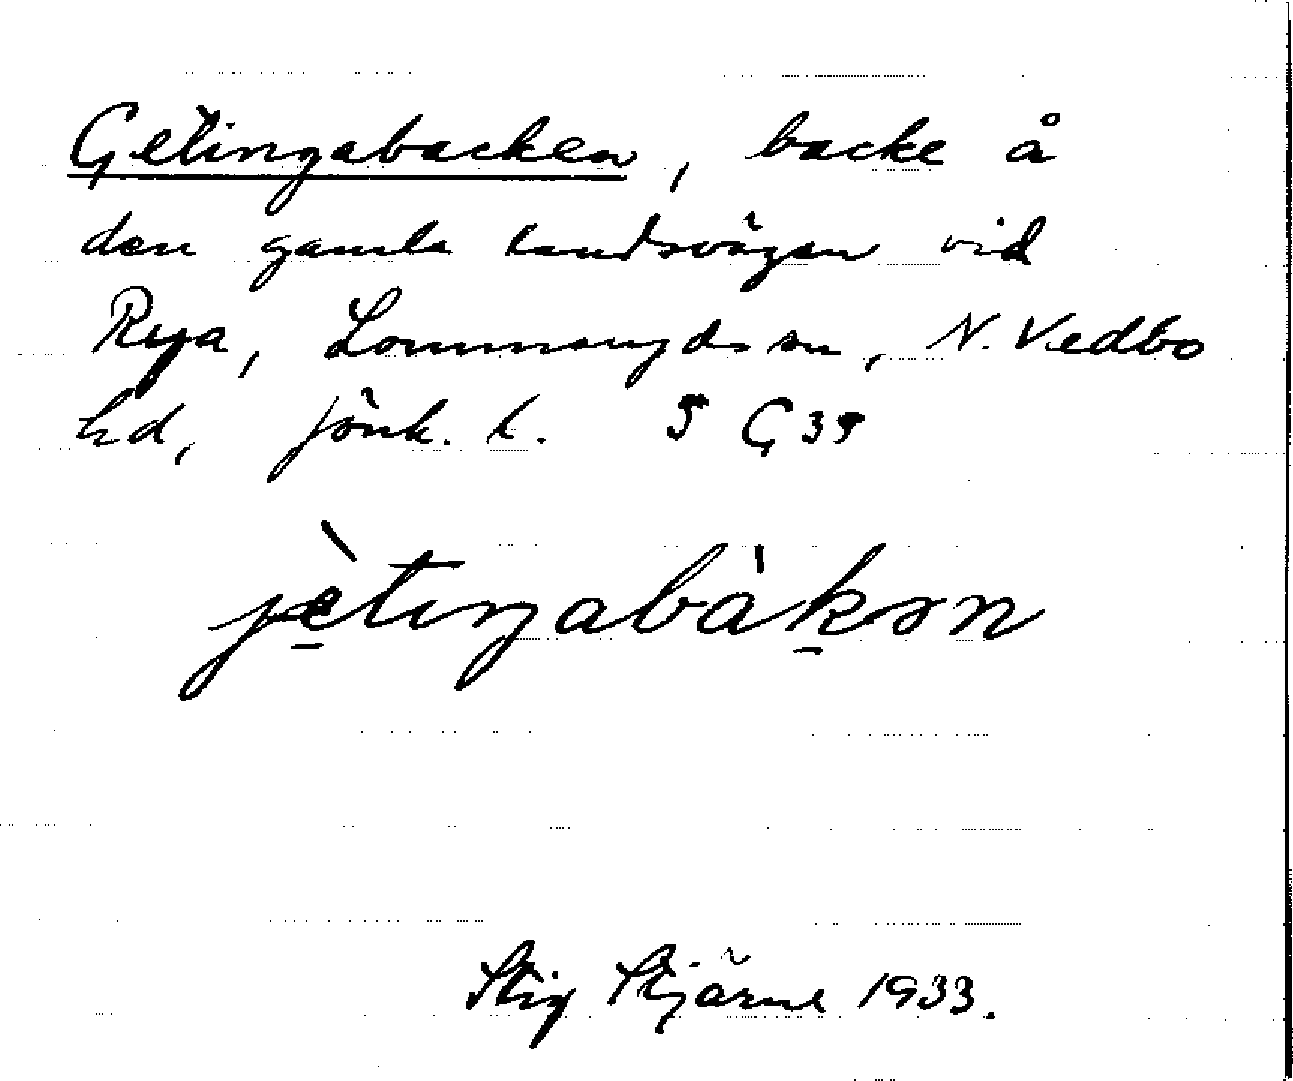 Getingabacken, backe å
den gamla landsvägen vid
Rya, Lommaryds sn, N. Vedbo
hd, Jönk. l. 5 G 35
jètiŋabàkən
Stig Stjärne 1933.